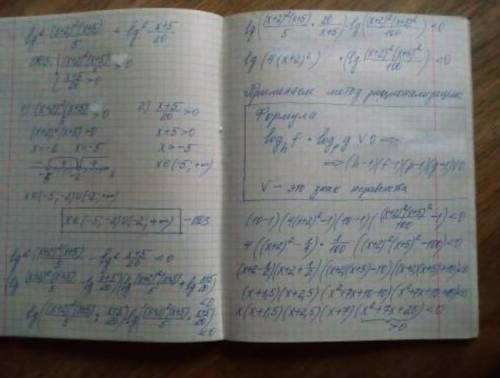 lg² (x+2)²(x+5)/5 < lg² x+5/20
ОДЗ: { (x+2)²(x+5)/5 > 0
x+5/20 > 0
1) (x+2)²(x+5)/5 > 0    2) x+5/20 > 0
(x+2)²(x+5) > 0    x+5 > 0
x = -2    x = -5    x > -5
x ∈ (-5; +∞)
x ∈ (-5; -2) ∪ (-2; +∞)
x ∈ (-5; -2) ∪ (-2; +∞) - ОДЗ
lg² (x+2)²(x+5)/5 - lg² x+5/20 < 0
(lg (x+2)²(x+5)/5 - lg x+5/20)(lg (x+2)²(x+5)/5 + lg x+5/20) < 0
lg((x+2)²(x+5)/5 : x+5/20) · lg((x+2)²(x+5)/5 · x+5/20) < 0
lg((x+2)²(x+5)/5 · 20/x+5) · lg((x+2)²(x+5)²/100) < 0
lg (4(x+2)²) · lg((x+2)²(x+5)²/100) < 0
Применяем метод рационализации
Формула
log_h f · log_p g V 0 ⇔
⇔ (h-1)(f-1)(p-1)(g-1) V 0
V - это знак неравенства
(10-1)(4(x+2)²-1)(10-1)((x+2)²(x+5)²/100 - 1) < 0
4((x+2)² - 1/4) · 1/100 ((x+2)²(x+5)² - 100) < 0
(x+2-1/2)(x+2+1/2)((x+2)(x+5)-10)((x+2)(x+5)+10) < 0
(x+1,5)(x+2,5)(x²+7x+10-10)(x²+7x+10+10) < 0
x(x+1,5)(x+2,5)(x+7)(x²+7x+20) < 0
> 0